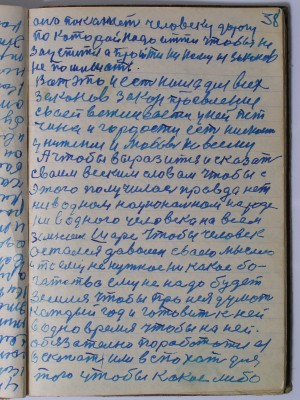 58
она покажет человеку дорогу
по которой надо итти чтобы не
запутится а пройти ни кому и законов
не помешать.
Вот это и есть никогда всех
законов закон проявление
своей вежливости у ней нет
чина и гордости есть
унижения и любовь ко всему
А чтобы выразится и сказать
своим веским словам чтобы с
этого получилась правда нет
ни в одном национальном народе
ни в одного человека на всем
земном шаре Чтобы человек
остался доволен своею мыслью
и ему ненужное ни какое бо-
гатства ему не надо будет
земля чтобы про нея думать
каждый год и готовить к ней
в одно время чтобы на ней.
обязательно поработать
вскопать или вспохать для
того чтобы какое либо